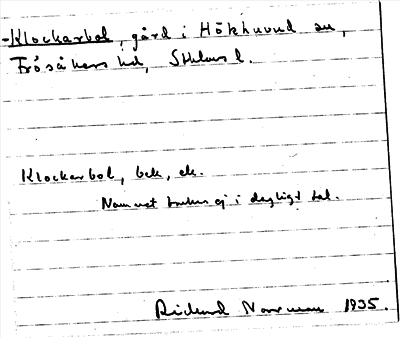 -Klockarbol, gård i Hökhuvud sn,
Frösåkers hd, Sthlms l.
Klockarbol, bek, ck.
Namnet brukas ej i dagligt tal.
Rickard Norrman 1935.